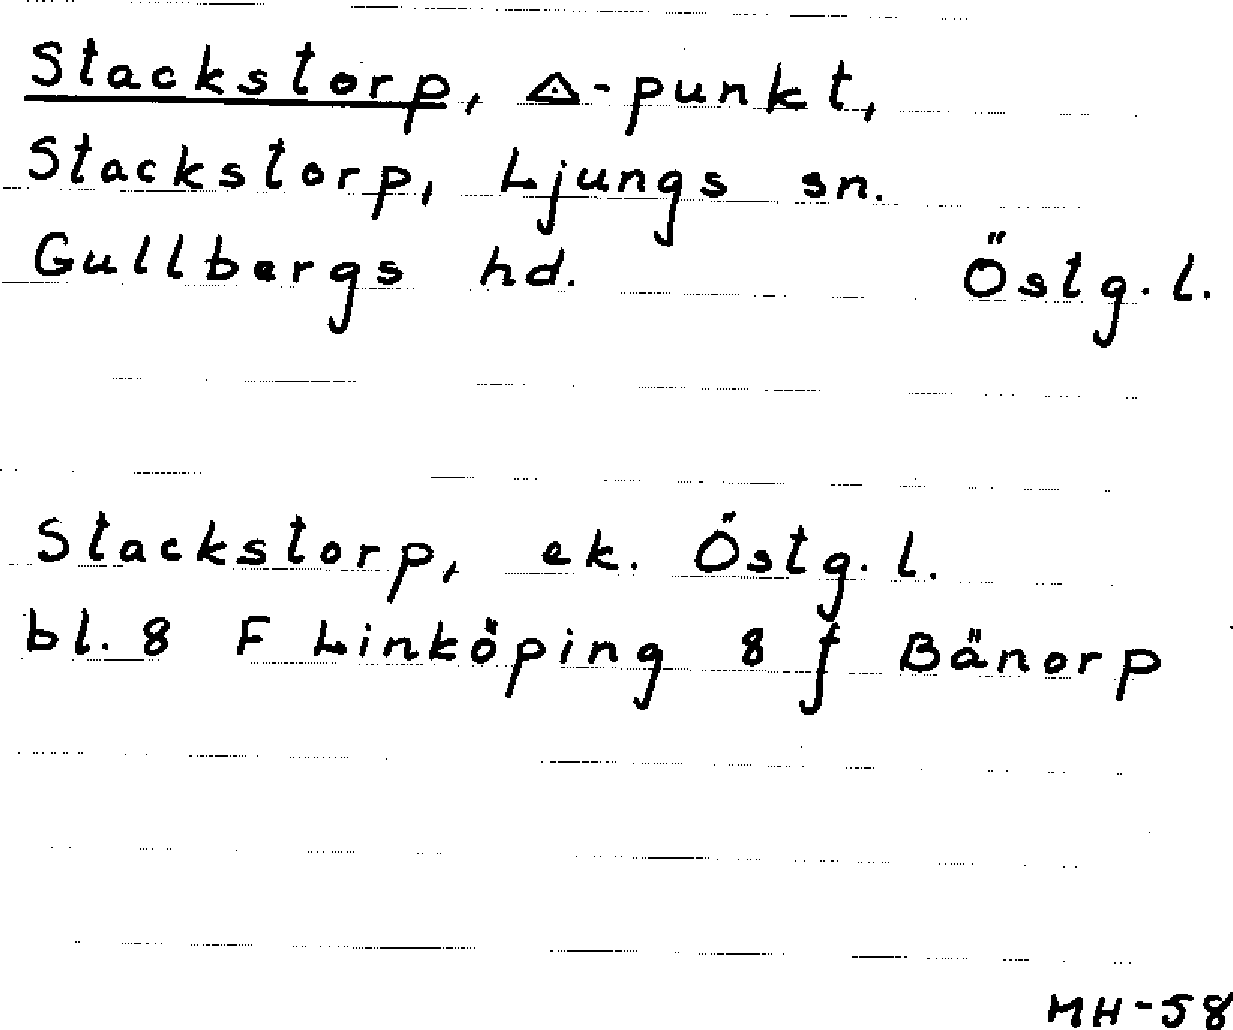 Stackstorp, △-punkt,
Stackstorp, Ljungs sn.
Gullbergs hd. Östg.l.
Stackstorp, ek. Östg.l.
bl. 8 F Linköping 8 f Bänorp
MH-58